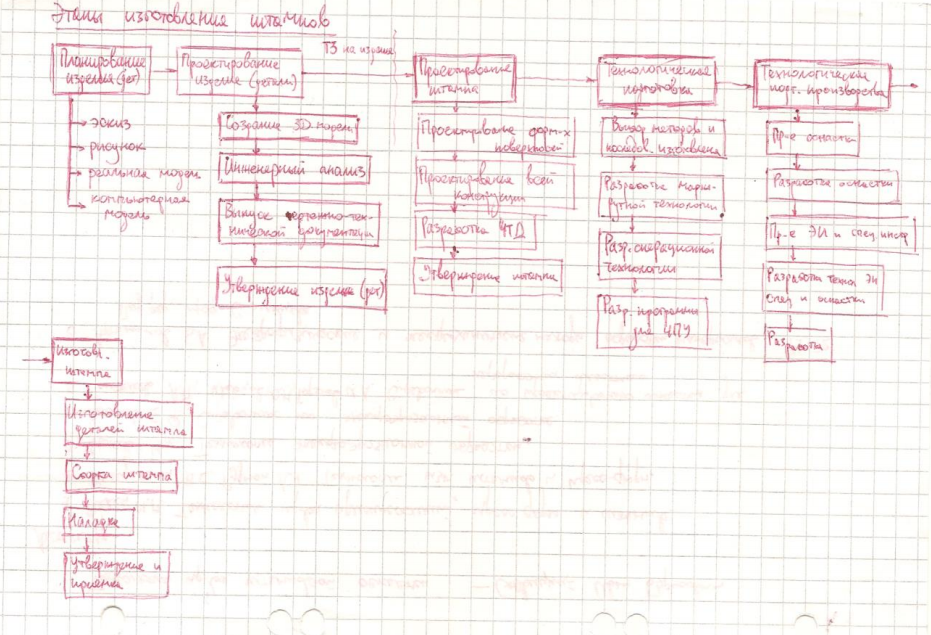 Этапы изготовления штампов
ТЗ на изделие
Планирование
изделия (дет)
→ эскиз
→ рисунок
→ реальная модель
→ компьютерная
модель
Проектирование
изделия (детали)
Создание 3D модели
Инженерный анализ
Выпуск чертежно-тех-
нической документации
Утверждение изделия (дет)
Проектирование
штампа
Проектирование форм-х
поверхностей
Проектирование всей
конструкции
Разработка ЧТД
Утверждение штампа
Технологическая
подготовка
Выбор методов и
последов. изготовления
Разработка марш-
рутной технологии
Разр. операционной
технологии
Разр. программы
для ЧПУ
Технологическая
подг. производства
Пр-е оснастки
Разработка оснастки
Пр-е ЭИ и спец. инстр
Разработка технол ЭИ
спец и оснастки
Разработка
Изготовл.
штампа
Изготовление
деталей штампа
Сборка штампа
Наладка
Утверждение и
приёмка